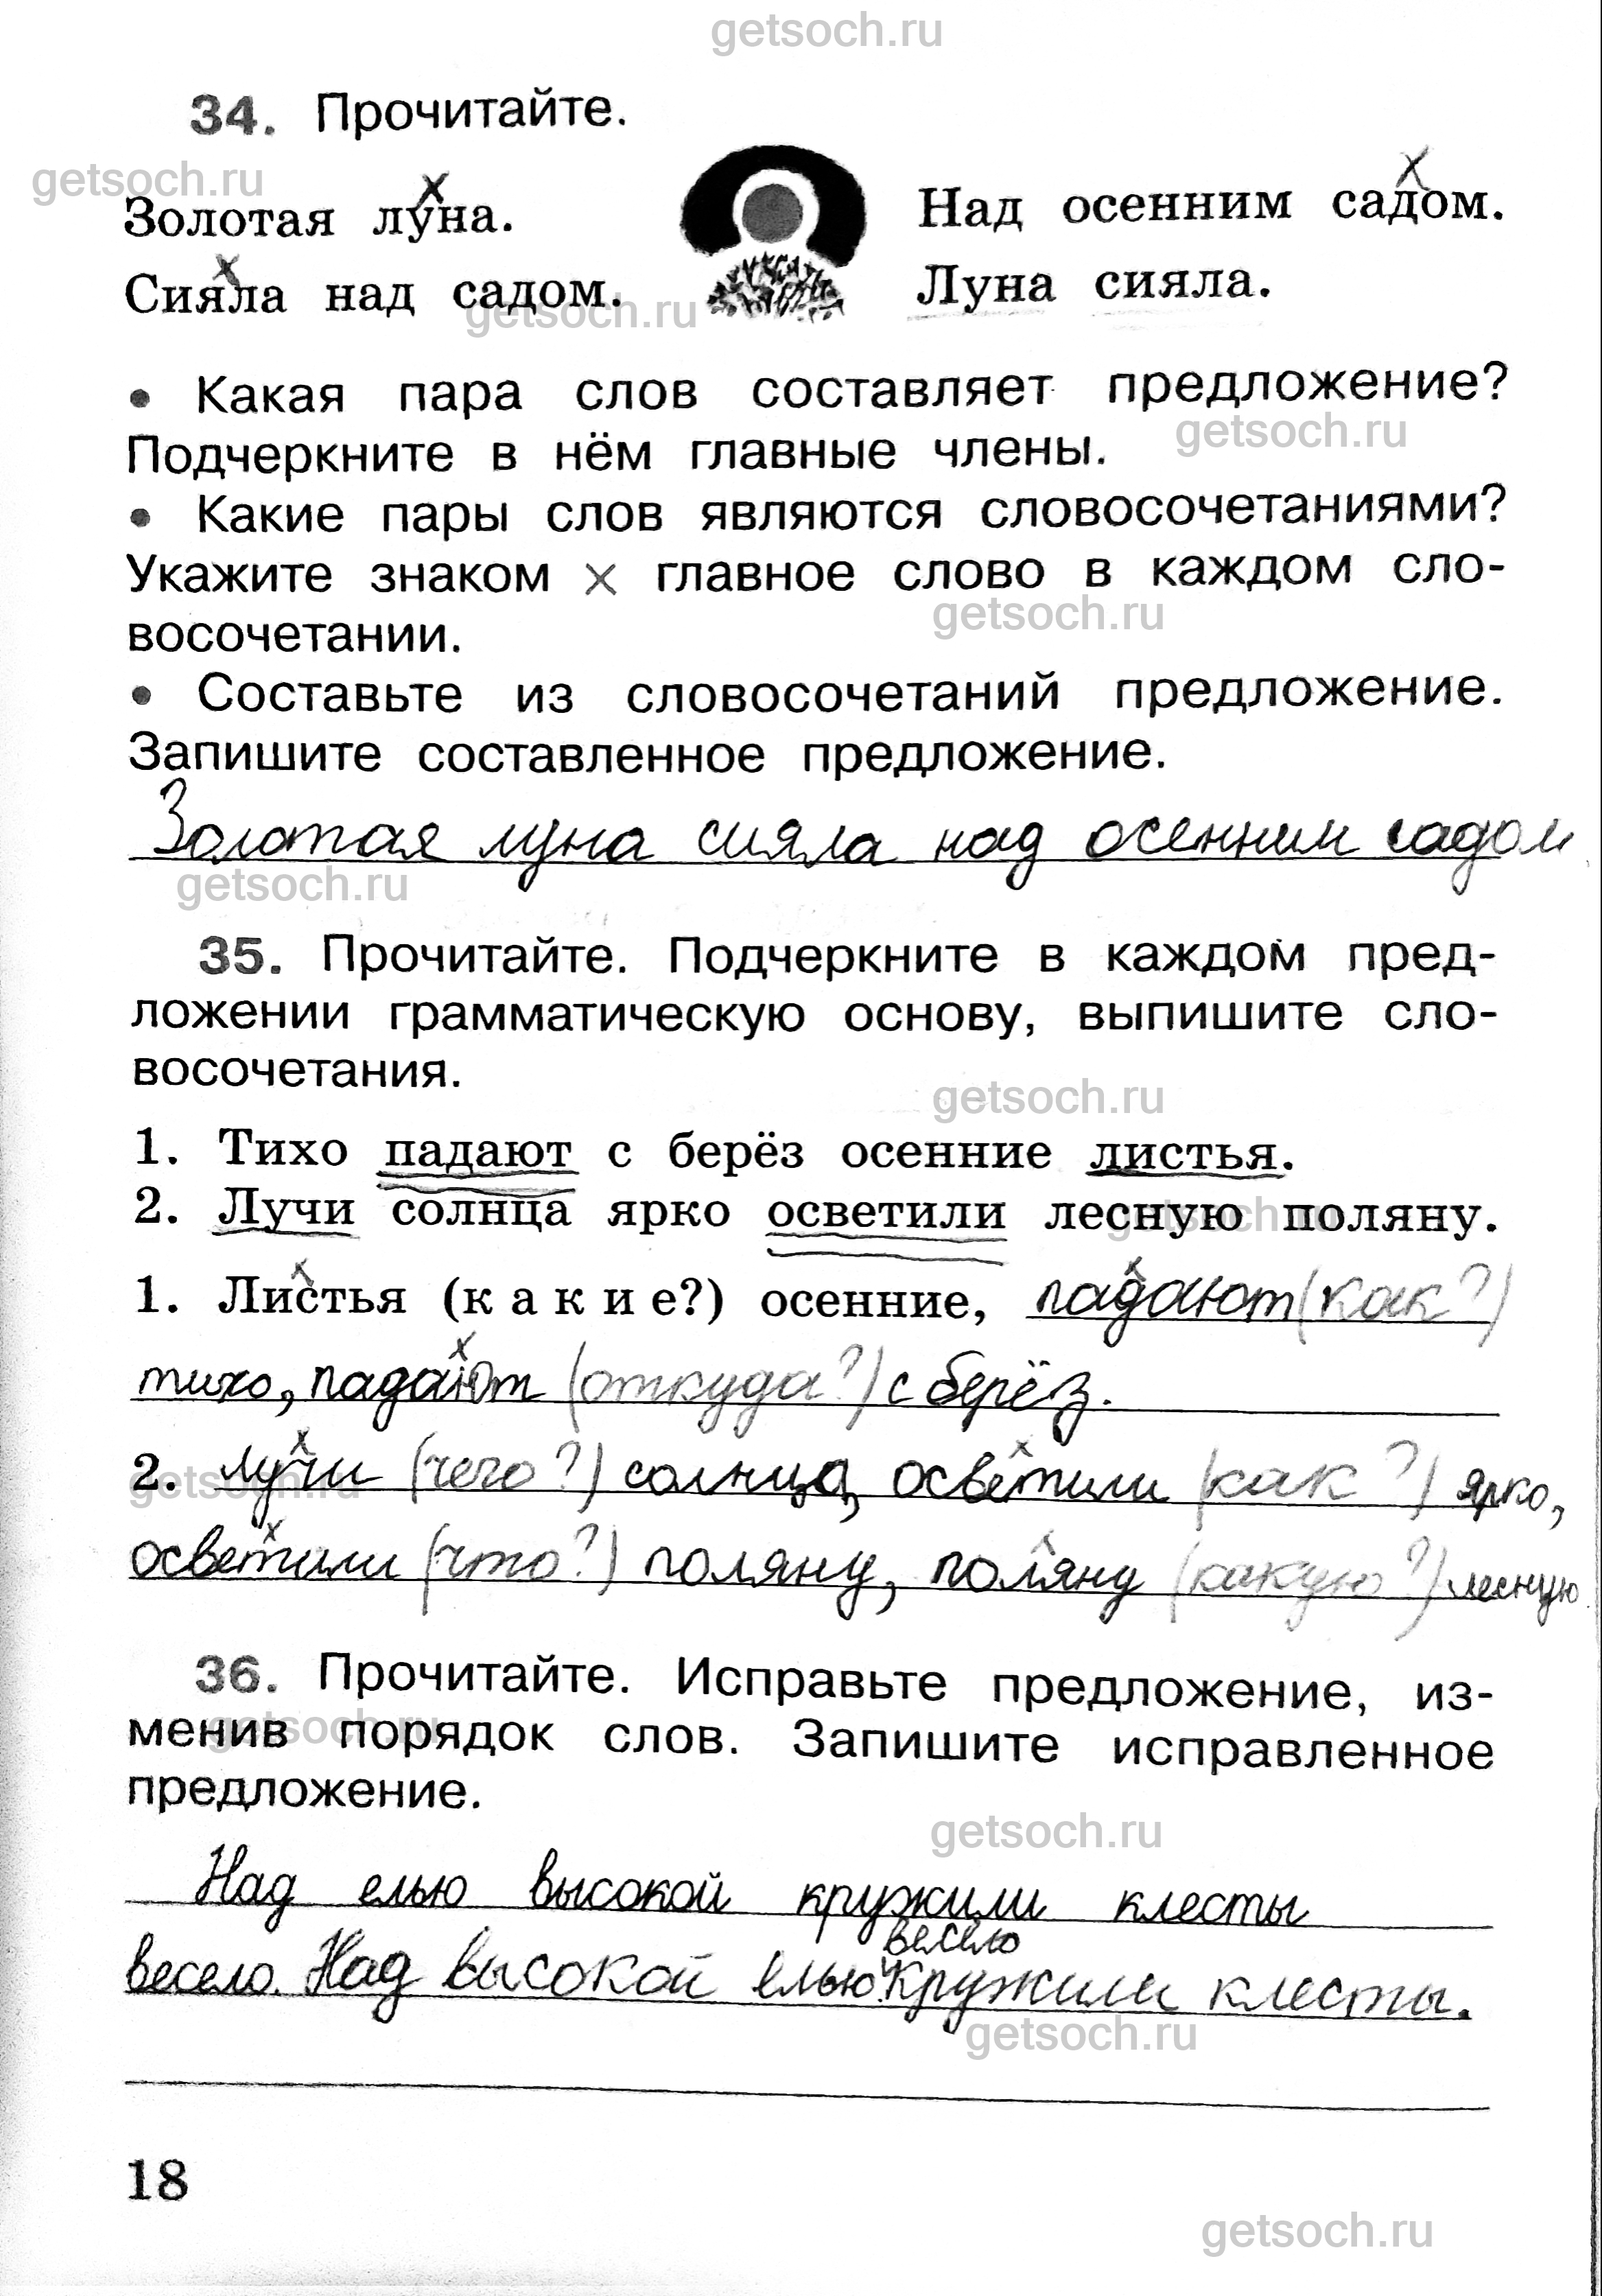 getsoch.ru
34. Прочитайте.
getsoch.ru
Золотая луна. Над осенним садом.
Сияла над садом. Луна сияла.
getsoch.ru
• Какая пара слов составляет предложение?
getsoch.ru
Подчеркните в нём главные члены.
• Какие пары слов являются словосочетаниями?
Укажите знаком х главное слово в каждом сло-
getsoch.ru
восочетании.
• Составьте из словосочетаний предложение.
Запишите составленное предложение.
Золотая луна сияла над осенним садом
getsoch.ru
35. Прочитайте. Подчеркните в каждом пред-
ложении грамматическую основу, выпишите сло-
восочетания.
getsoch.ru
1. Тихо падают с берёз осенние листья.
2. Лучи солнца ярко осветили лесную поляну.
getsoch.ru
1. Листья (какие?) осенние, падают (как?)
тихо, падают (откуда?) с берёз.
2. лучи (чего?) солнца, осветили (как?) ярко,
getsoch.ru
осветили (что?) поляну, поляну (какую?) лесную.
36. Прочитайте. Исправьте предложение, из-
getsoch.ru
менив порядок слов. Запишите исправленное
предложение.
getsoch.ru
Над елью высокой кружили клесты
весело
весело. Над высокой елью кружили клесты.
getsoch.ru
18
getsoch.ru